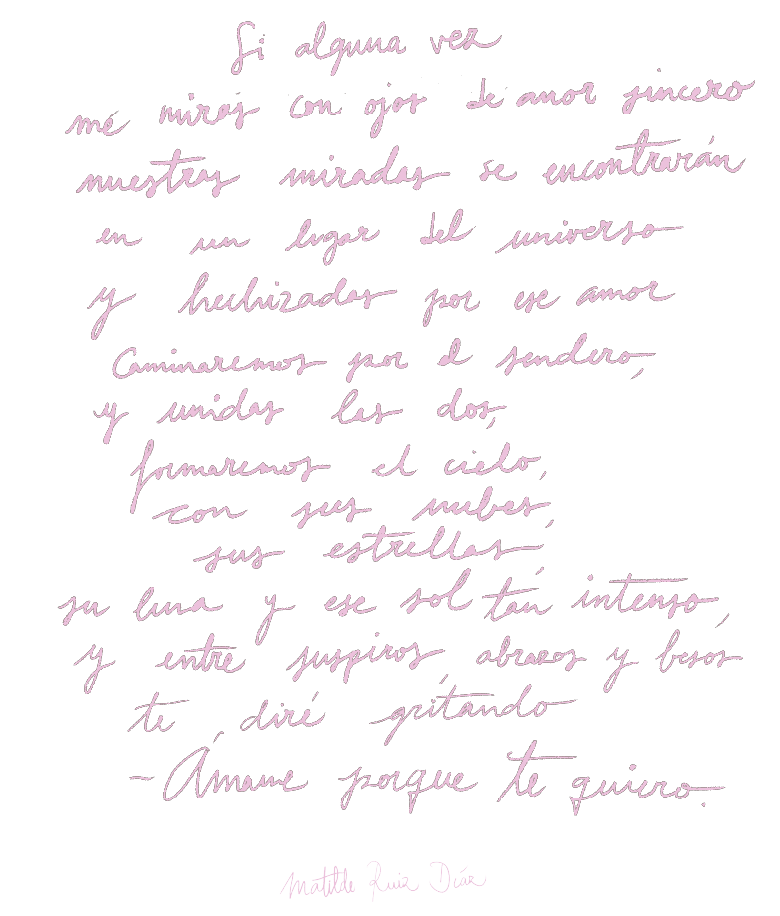 Si alguna vez
mé mirás con ojos de amor sincero
nuestras miradas se encontrarán
en un lugar del universo
y hechizadas por ese amor
Caminaremos por el sendero,
y unidas las dos,
formaremos el cielo,
con sus nubes,
sus estrellas,
su luna y ese sol tan intenso,
y entre suspiros, abrazos y besos
te diré gritando
-Ámame porque te quiero.
Matilde Ruiz Díaz